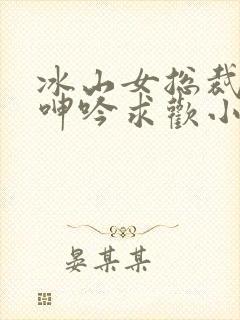 冰山女总裁
呻吟求歡小
晏某某